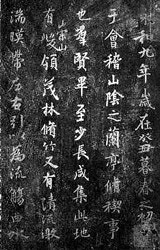 和九年歲在癸丑暮春之初
于會稽山陰之蘭亭脩禊事
也羣賢畢至少長咸集此地
崇山
有峻領茂林脩竹又有清流激
湍暎帶左右引以為流觴曲水